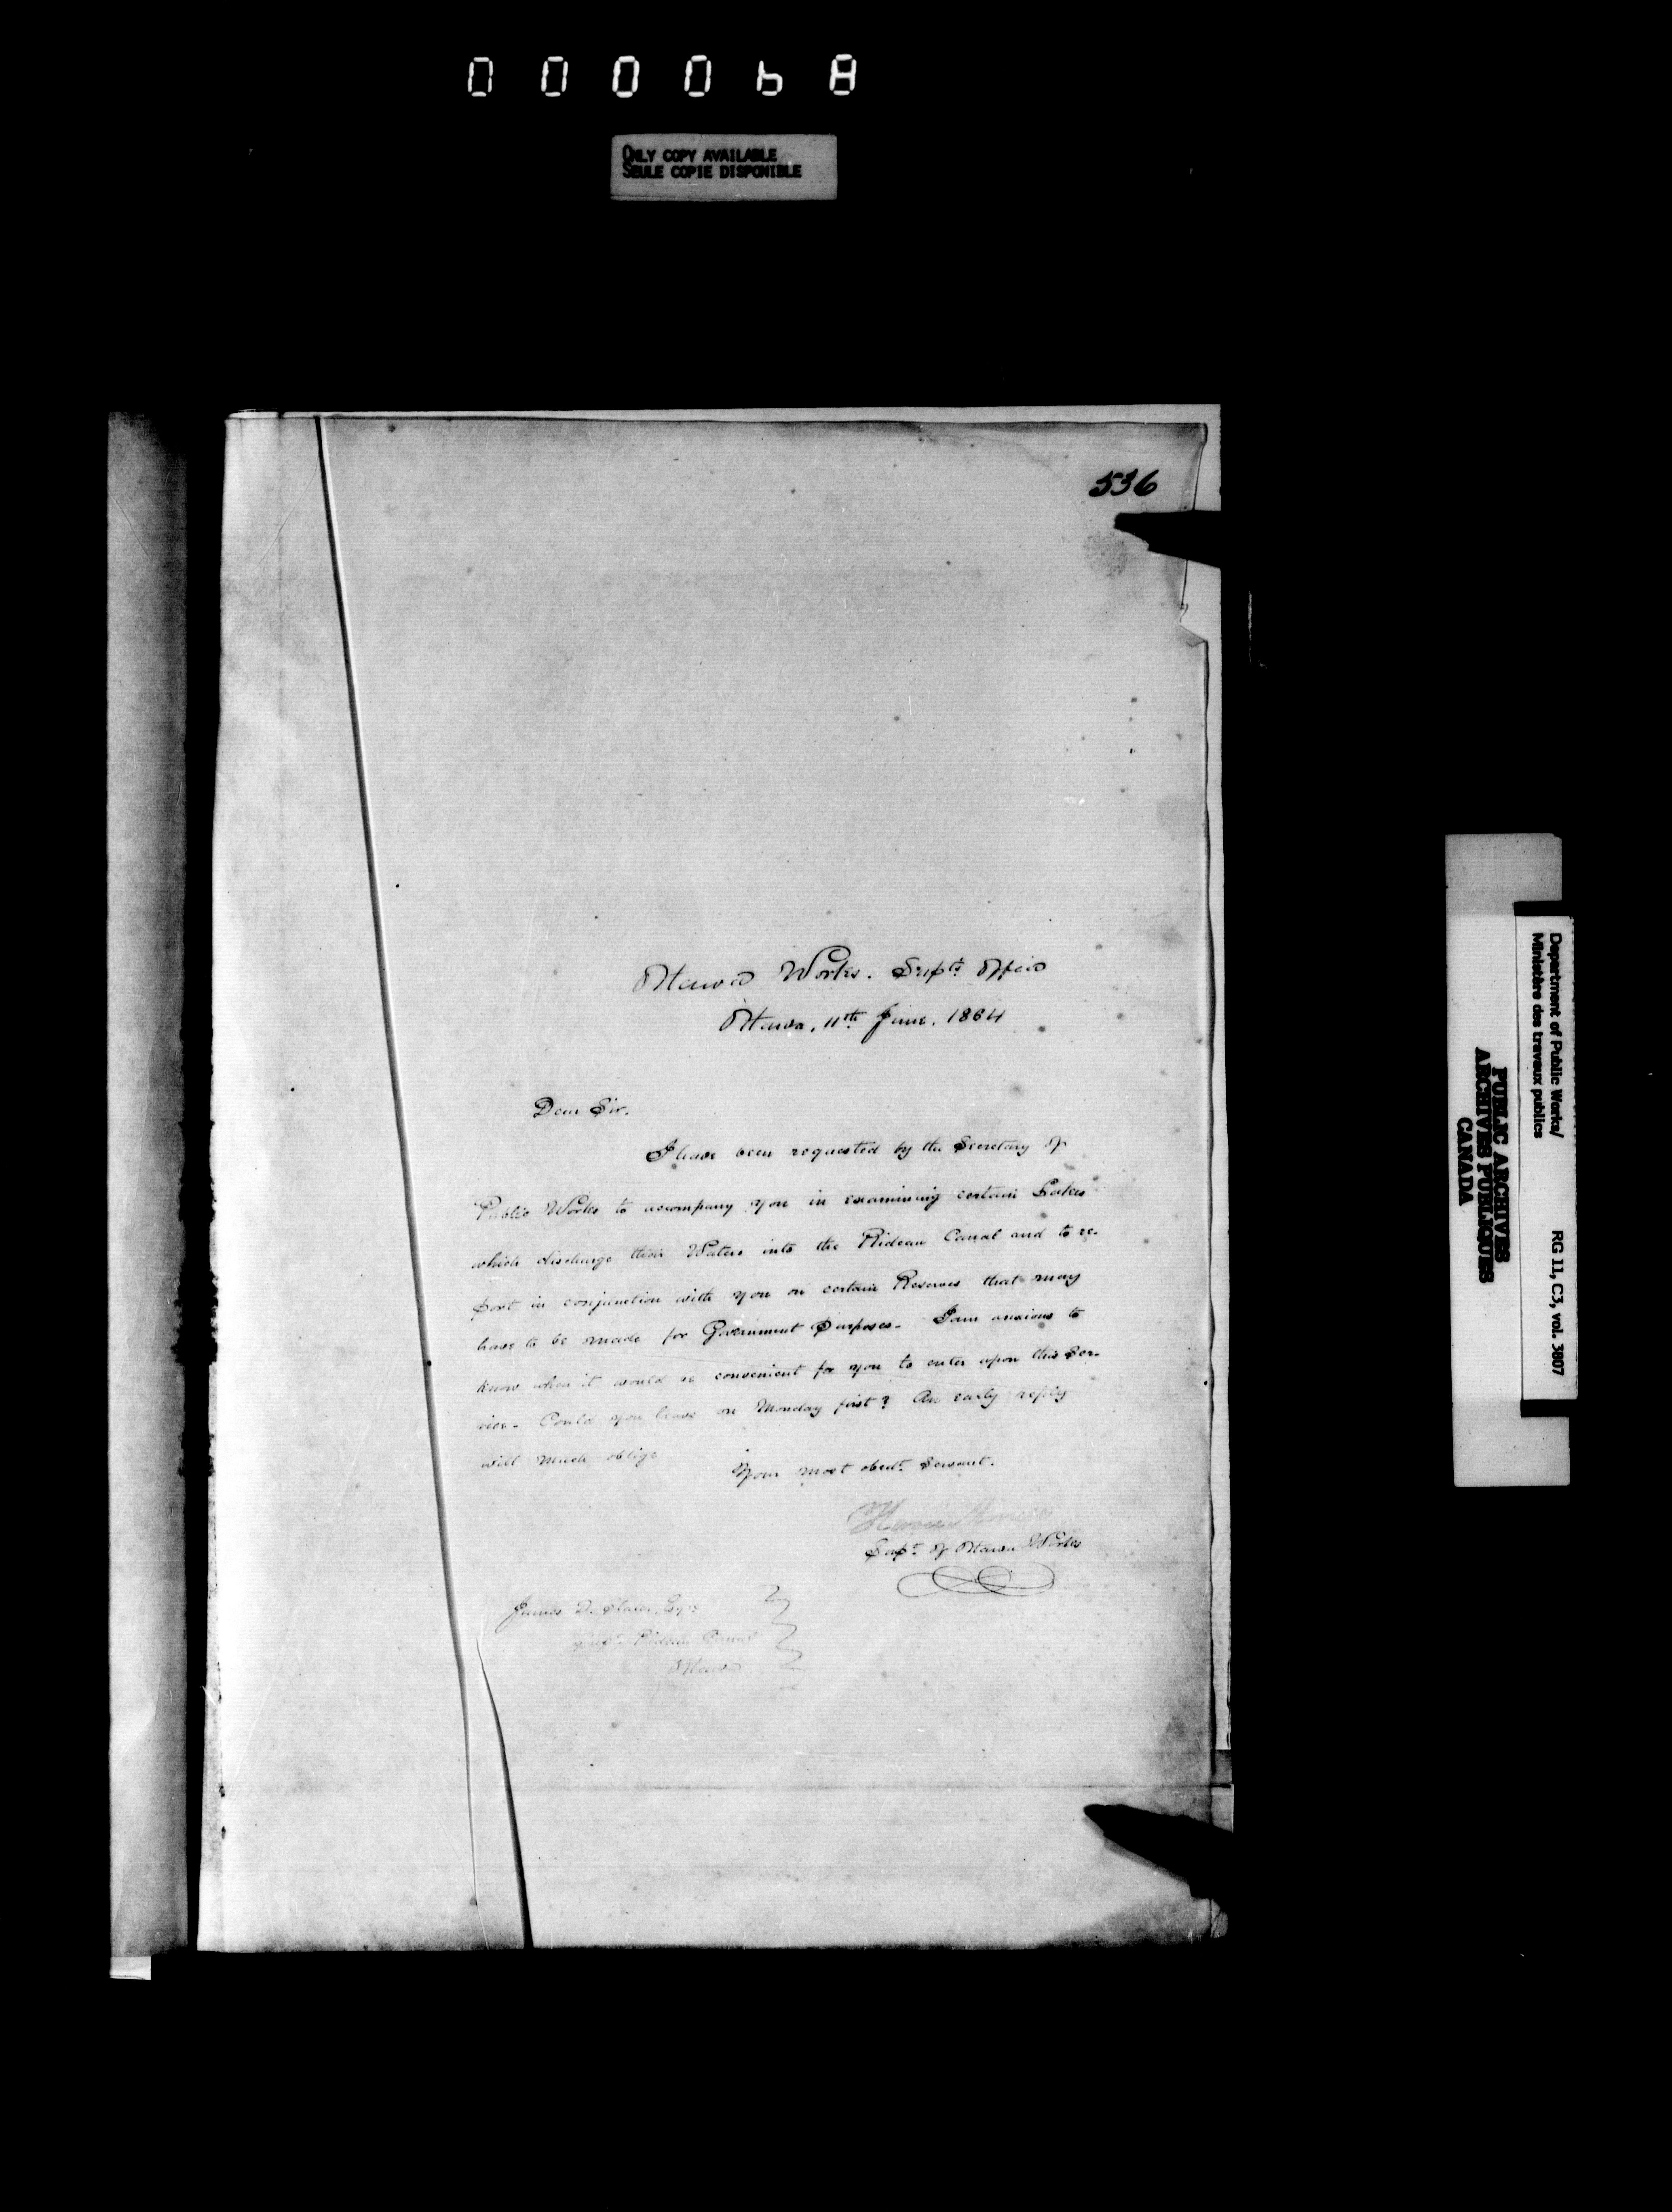 000068
ONLY COPY AVAILABLE
SEULE COPIE DISPONIBLE
536
Ottawa Works. Supts Office
Ottawa, 11th June. 1864
Dear Sir.
I have been requested by the Secretary of
Public Works to accompany you in examining certain Lakes
which discharge their Waters into the Rideau Canal and to re-
port in conjunction with you on certain Reserves that may
have to be made for Government Purposes. I am anxious to
know when it would be convenient for you to enter upon this Ser-
vice. Could you leave on Monday first? An early reply
will much oblige
Your most obedt. Servant.
Supt. of Ottawa Works
James D. Slater, Esqre
Supt. Rideau Canal
Ottawa
Department of Public Works/
Ministère des travaux publics
RG 11, C3, vol. 3807
PUBLIC ARCHIVES
ARCHIVES PUBLIQUES
CANADA